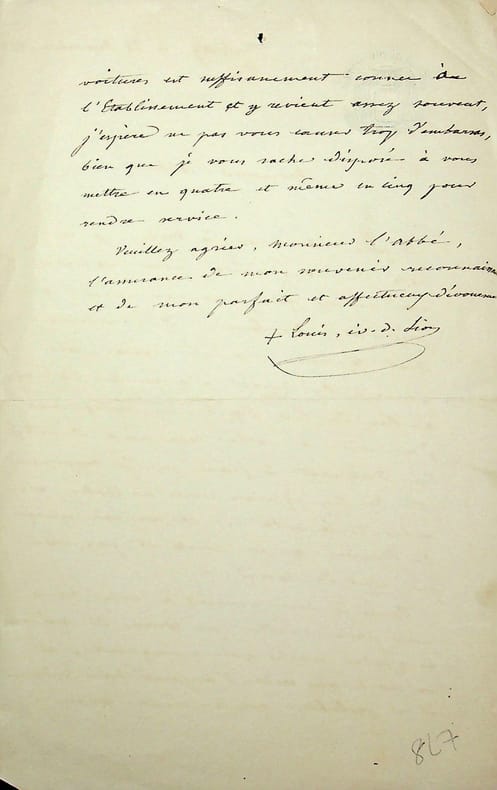 voitures est suffisamment connu à
l'Etablissement et y revient assez souvent,
j'espère ne pas vous causer trop d'embarras,
bien que je vous sache disposé à vous
mettre en quatre et même en cinq pour
rendre service.
Veuillez agréer, Monsieur l'Abbé,
l'assurance de mon souvenir reconnaiss
et de mon parfait et affectueux dévouemen
+ Louis, év. d. Sion
847